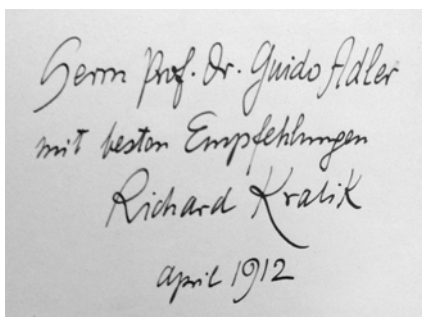 Herrn Prof. Dr. Guido Adler
mit besten Empfehlungen
Richard Kralik
April 1912